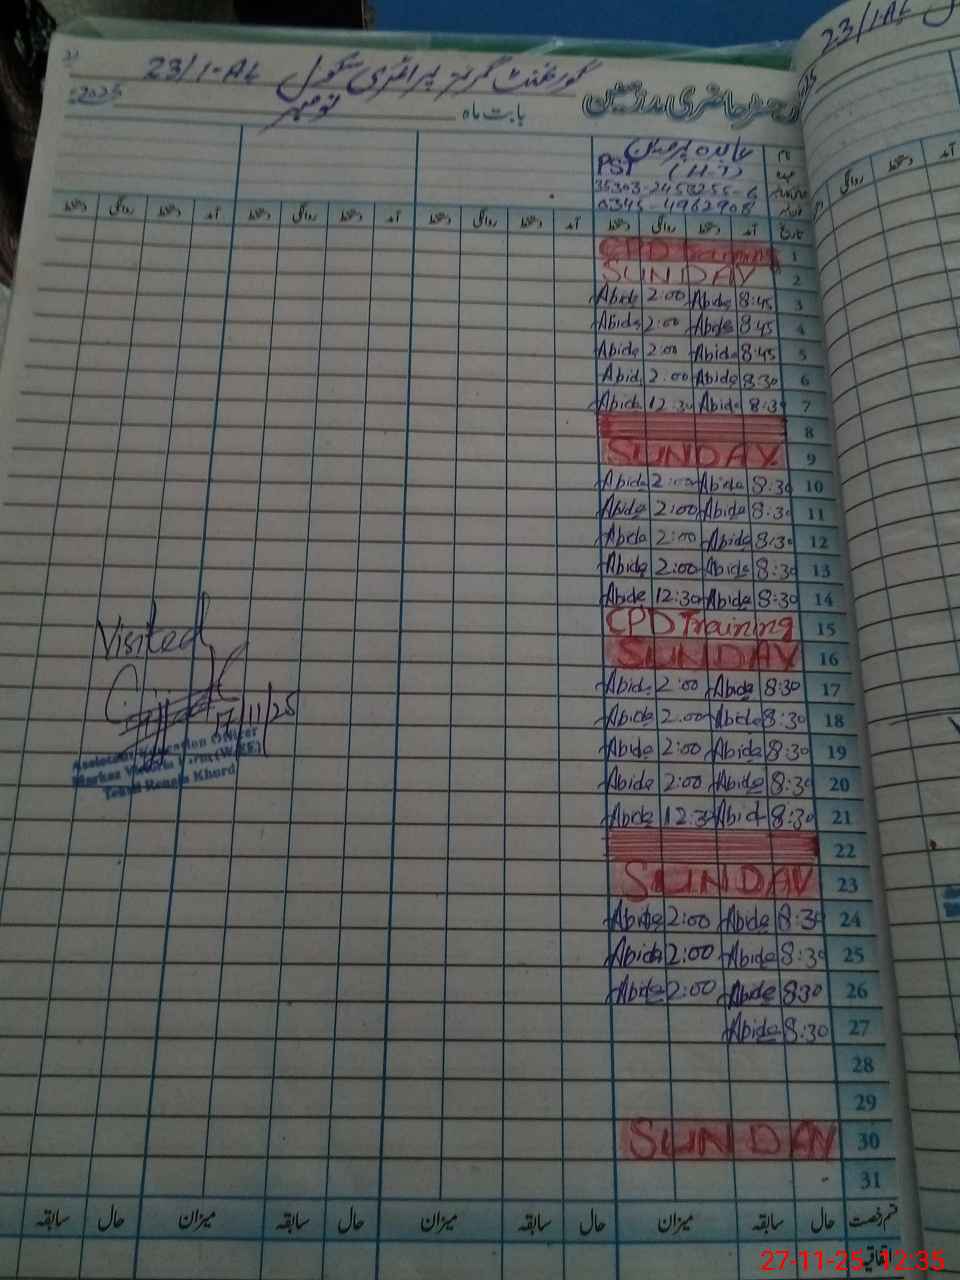 رجسٹر حاضری مدرسین گورنمنٹ گرلز پرائمری سکول 23/1-AL
بابت ماہ نومبر 2025
نام عابدہ پروین
عہدہ PST (H.T)
35303-2458255-6
0345-4962908
تاریخ آمد دستخط روانگی دستخط آمد دستخط روانگی دستخط آمد دستخط روانگی دستخط آمد دستخط روانگی دستخط
1 CPD Training
2 SUNDAY
3 8:45 Abida 2:00 Abida
4 8:45 Abida 2:00 Abida
5 8:45 Abida 2:00 Abida
6 8:30 Abida 2:00 Abida
7 8:30 Abida 12:30 Abida
8
9 SUNDAY
10 8:30 Abida 2:00 Abida
11 8:30 Abida 2:00 Abida
12 8:30 Abida 2:00 Abida
13 8:30 Abida 2:00 Abida
14 8:30 Abida 12:30 Abida
15 CPD Training
16 SUNDAY
17 8:30 Abida 2:00 Abida
18 8:30 Abida 2:00 Abida
19 8:30 Abida 2:00 Abida
20 8:30 Abida 2:00 Abida
21 8:30 Abida 12:30 Abida
22
23 SUNDAY
24 8:30 Abida 2:00 Abida
25 8:30 Abida 2:00 Abida
26 8:30 Abida 2:00 Abida
27 8:30 Abida
28
29
30 SUNDAY
31
قسم رخصت حال سابقہ میزان حال سابقہ میزان حال سابقہ میزان حال سابقہ
اتفاقیہ
Visited
17/11/25
Assistant Education Officer
Markaz
Tehsil Renala Khurd
23/1-AL
آمد دستخط روانگی
27-11-25 12:35